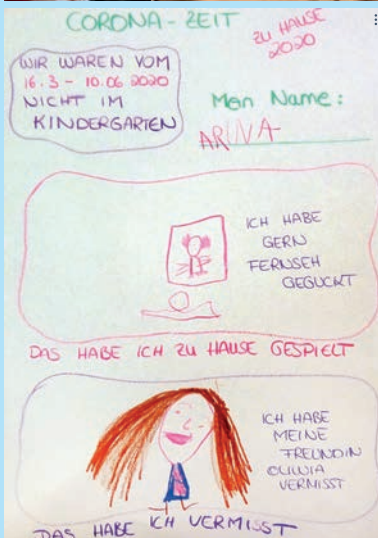 CORONA - ZEIT
ZU HAUSE
2020
WIR WAREN VOM
16.3 - 10.06 2020
NICHT IM
KINDERGARTEN
Mein Name:
ARINA
ICH HABE
GERN
FERNSEH
GEGUCKT
DAS HABE ICH ZU HAUSE GESPIELT
ICH HABE
MEINE
FREUNDIN
OLIWIA
VERMISST
DAS HABE ICH VERMISST